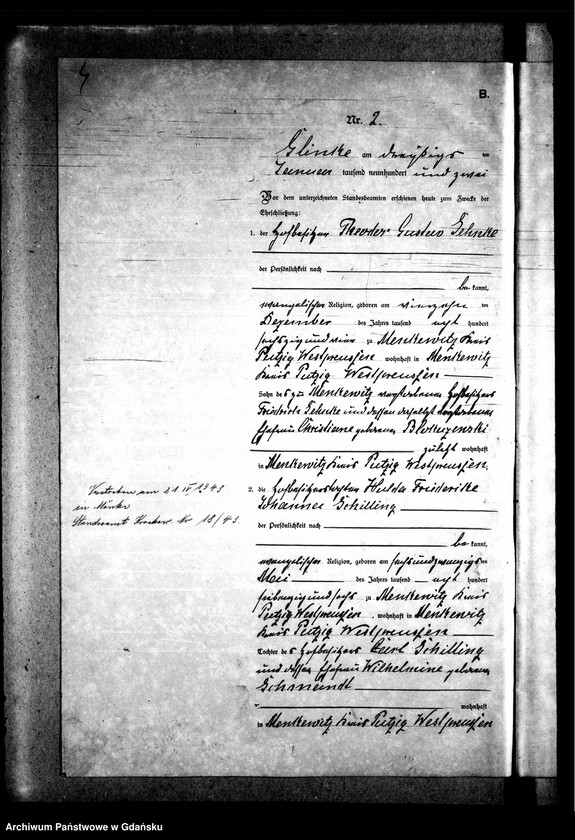 4
B.
Nr. 2.
Glinke am dreißigs ten
Januar tausend neunhundert und zwei
Vor dem unterzeichneten Standesbeamten erschienen heute zum Zwecke der
Eheschließung:
1. der Hofbesitzer Theodor Gustav
der Persönlichkeit nach
be kannt,
evangelischer Religion, geboren am vierzehn ten
Dezember des Jahres tausend acht hundert
sechszig und vier zu Menkewitz Kreis
Putzig Westpreussen wohnhaft in Menkewitz
Kreis Putzig Westpreussen
Sohn des zu Menkewitz verstorbenen Hofbesitzers
Friedrich und dessen daselbst verstorbenen
Ehefrau Christiane geborenen
zuletzt wohnhaft
in Menkewitz Kreis Putzig Westpreussen.
2. die Hofbesitzerstochter Hulda Friderike
Johanna Schilling
der Persönlichkeit nach
be kannt,
evangelischer Religion, geboren am sechsundzwanzigs ten
Mai des Jahres tausend acht hundert
siebenzig und sechs zu Menkewitz Kreis
Putzig Westpreussen, wohnhaft in Menkewitz
Kreis Putzig Westpreussen
Tochter des Hofbesitzers Carl Schilling
und dessen Ehefrau Wilhelmine geborenen
Schmandt
wohnhaft
in Menkewitz Kreis Putzig Westpreussen
Verstorben am 21 IV 1943
in
Standesamt Nr 18/43.
Archiwum Państwowe w Gdańsku